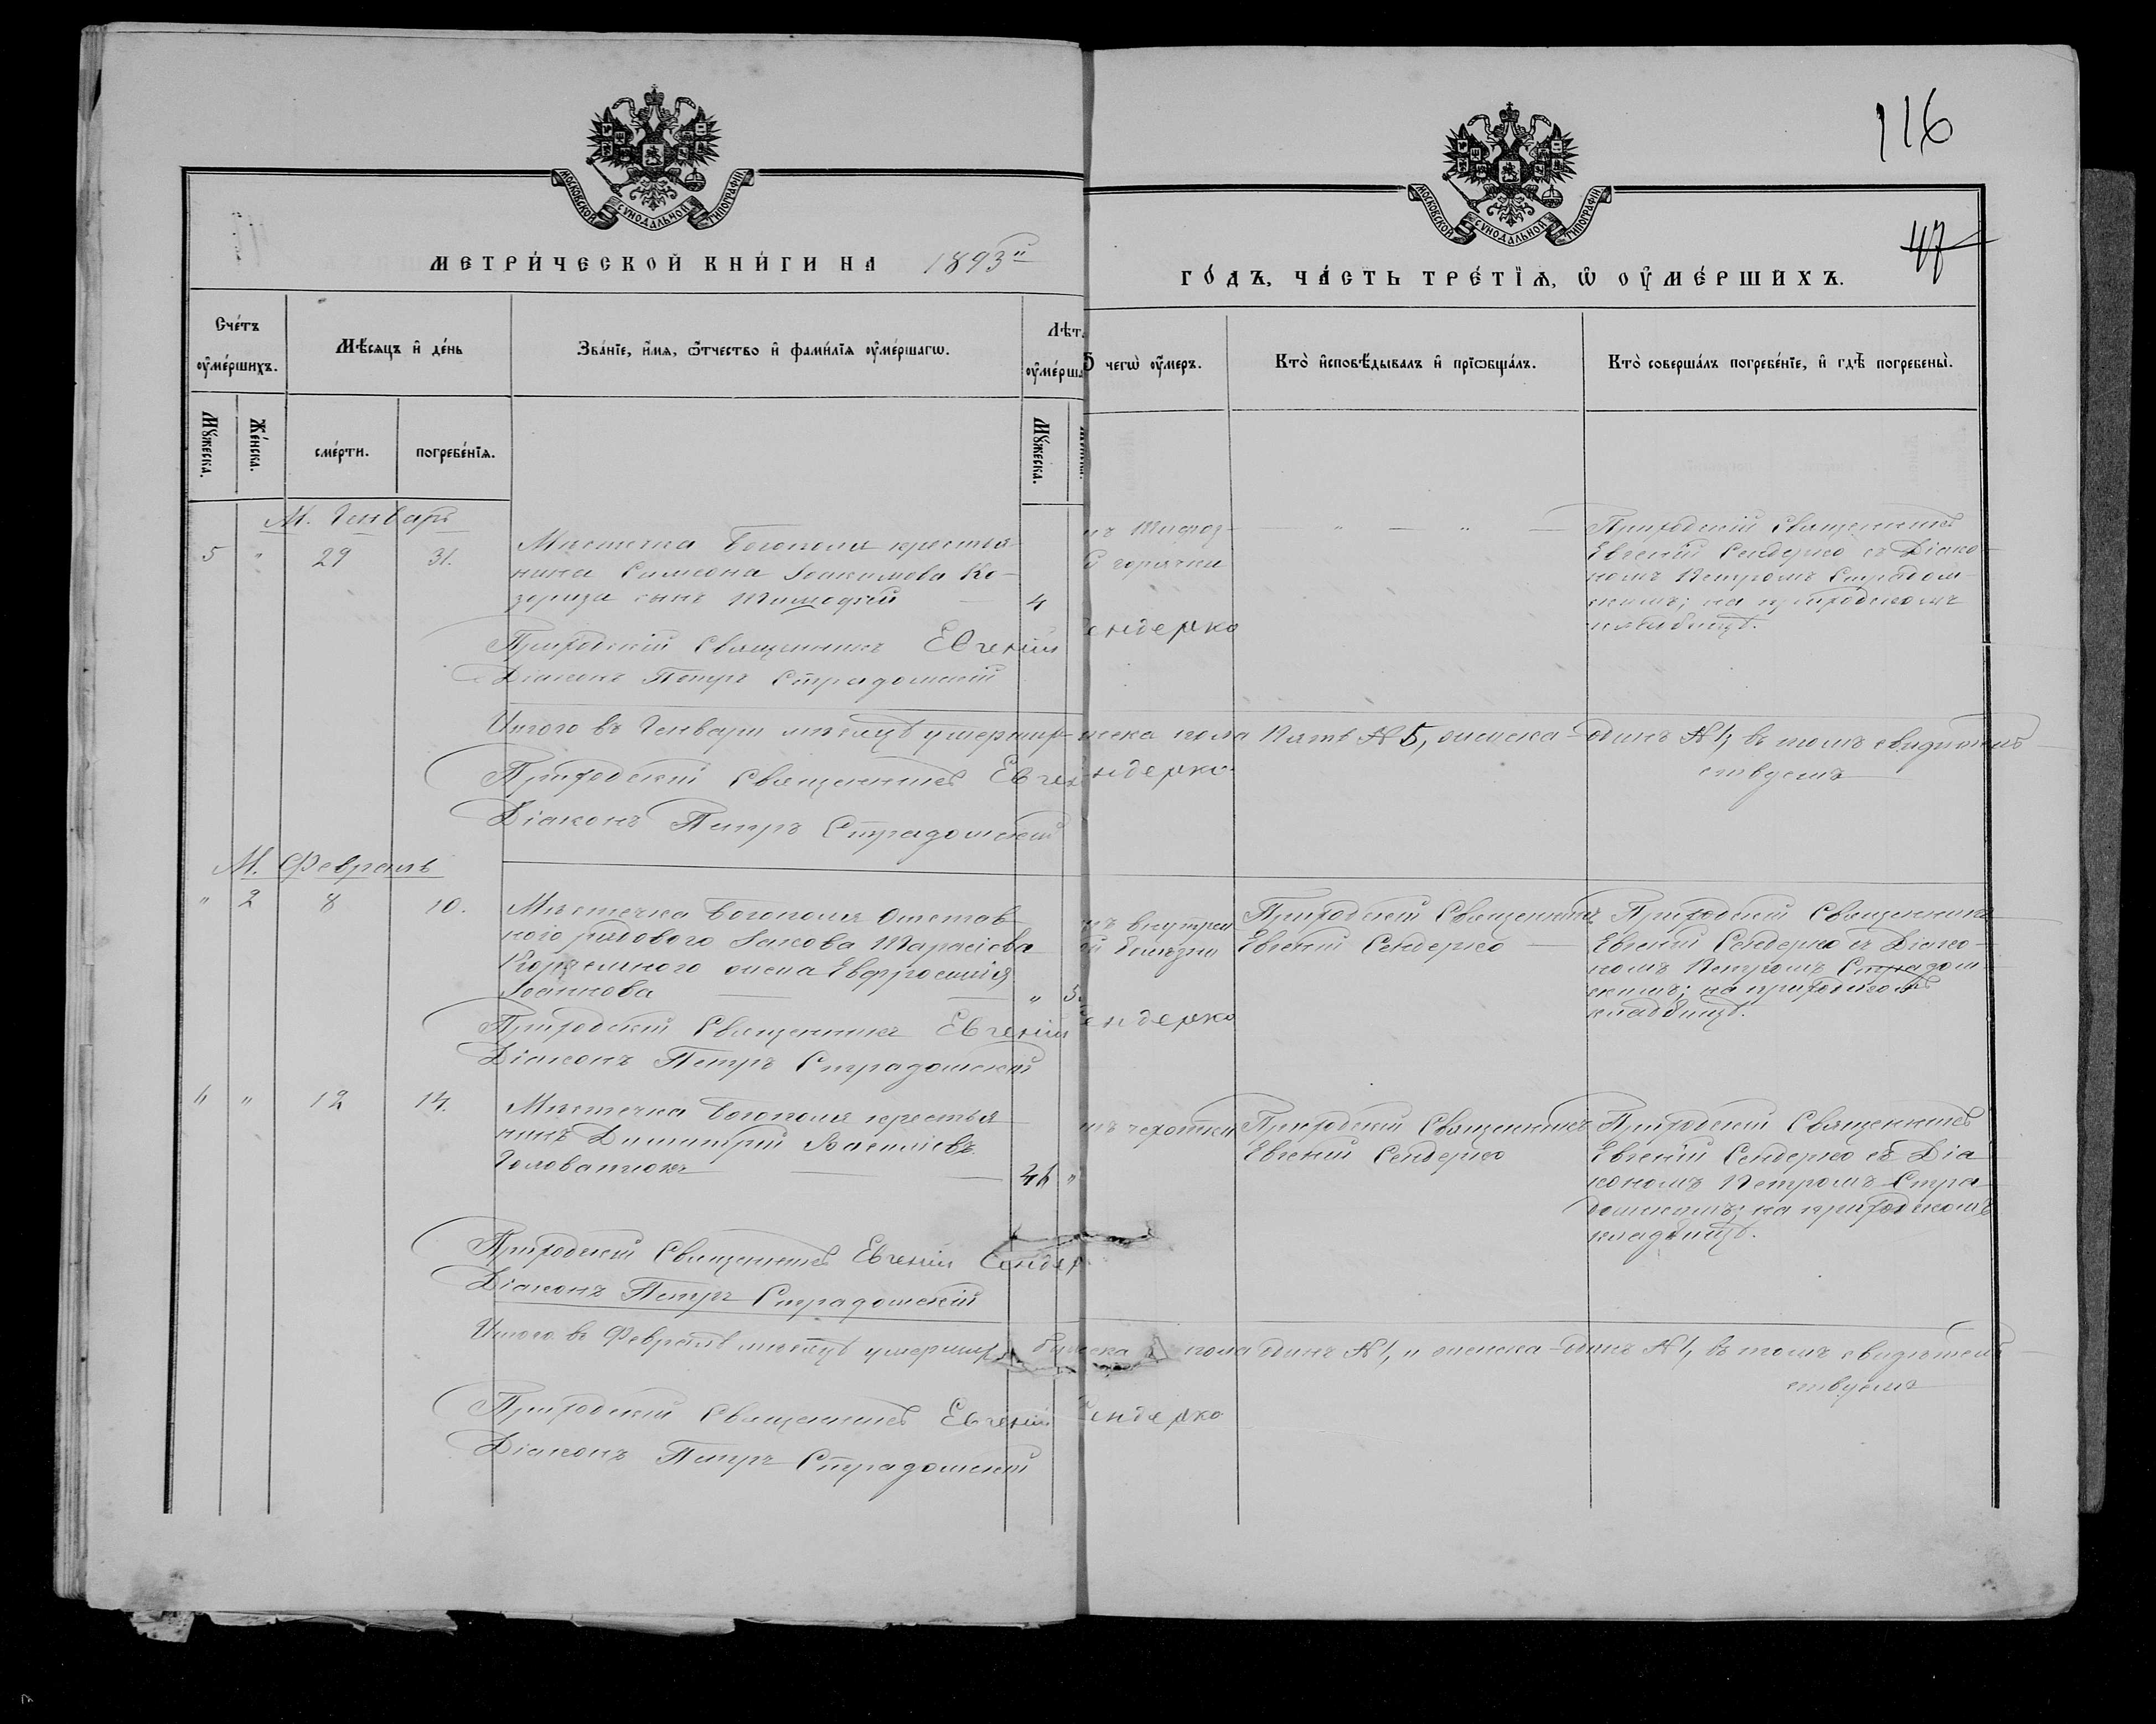 116
47
МОСКОВСКОЙ СѴНОДАЛЬНОЙ ТИПОГРАФІИ
МОСКОВСКОЙ СѴНОДАЛЬНОЙ ТИПОГРАФІИ
МЕТРИ́ЧЕСКОЙ КНИ́ГИ НА 1893й
ГО́ДЪ, ЧА́СТЬ ТРЕ́ТЇѦ, Ѡ ОУ҆МЕ́РШИХЪ.
Сче́тъ оу҆ме́ршихъ.
Мѣ́сяцъ и҆ де́нь
Зва́нїе, и҆́мя, ѻ҆́тчество и҆ фами́лїя оу҆ме́ршагѡ.
Лѣт
оу҆ме́рша
чегѡ̀ оу҆́меръ.
Кто̀ и҆сповѣ́дывалъ и҆ прїѡбща́лъ.
Кто̀ соверша́лъ погребе́нїе, и҆ гдѣ̀ погребены̀.
Мꙋ́жеска.
Же́нска.
сме́рти.
погребе́нїѧ.
Мꙋ́жеска.
М. Генварь
5 " 29 31.
Мѣстечка Богополя крестья-
нина Симеона Іоакимова Ко-
зориза сынъ Тимофей — 4
нъ Тифоз-
й горячки
— " — " —
Приходскій Священникъ
Евгеній Сендерко съ Діако-
номъ Петромъ Страдом-
скимъ; на приходскомъ
кладбищѣ.
Приходскій Священникъ Евгеній Сендерко
Діаконъ Петръ Страдомскій
Итого въ Генварѣ мѣсяцѣ умерших жеска пола Пять № 5, женска — одинъ № 1, въ томъ свидѣтель-
ствуемъ
Приходскій Священникъ Евген ндерко
Діаконъ Петръ Страдомскій
М. Февраль
" 2 8 10.
Мѣстечка Богополя Отстав-
ного рядового Іакова Тарасіева
жена Евфросинія
Іоаннова — — " 5
нъ внутрен
й болѣзни
Приходскій Священникъ
Евгеній Сендерко —
Приходскій Священникъ
Евгеній Сендерко съ Діако-
номъ Петромъ Страдом-
скимъ; на приходскомъ
кладбищѣ.
Приходскій Священникъ Евгеній ендерко
Діаконъ Петръ Страдомскій
6 " 12 14.
Мѣстечка Богополя крестья-
нинъ Димитрій Васильевъ
Головатюкъ — — 46 "
нъ чахотки
Приходскій Священникъ
Евгеній Сендерко
Приходскій Священникъ
Евгеній Сендерко съ Діа-
кономъ Петромъ Стра-
домскимъ; на приходскомъ
кладбищѣ.
Приходскій Священникъ Евгеній Сендер
Діаконъ Петръ Страдомскій
Итого въ Февралѣ мѣсяцѣ умерших пола одинъ № 1, и женска — одинъ № 1, въ томъ свидѣтель-
ствуемъ
Приходскій Священникъ Евгеній Сендерко
Діаконъ Петръ Страдомскій